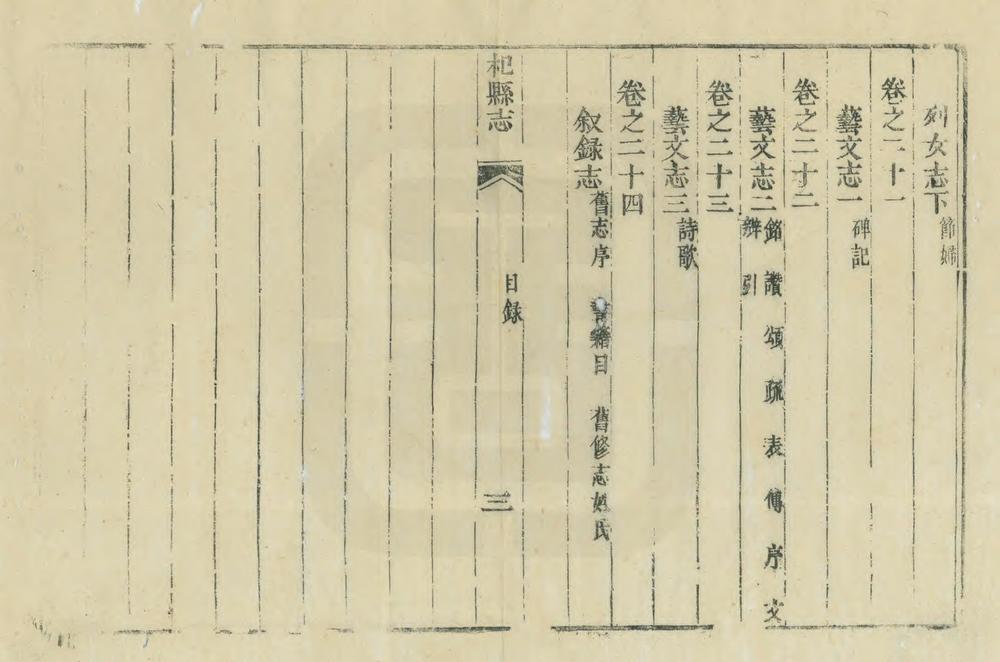 列女志下 節婦
卷之二十一
藝文志一 碑記
卷之二十二
藝文志二 銘 讚 頌 疏 表 傳 序 文 辨 引
卷之二十三
藝文志三 詩歌
卷之二十四
叙錄志 舊志序 書籍目 舊修志姓氏
杞縣志 目録 三